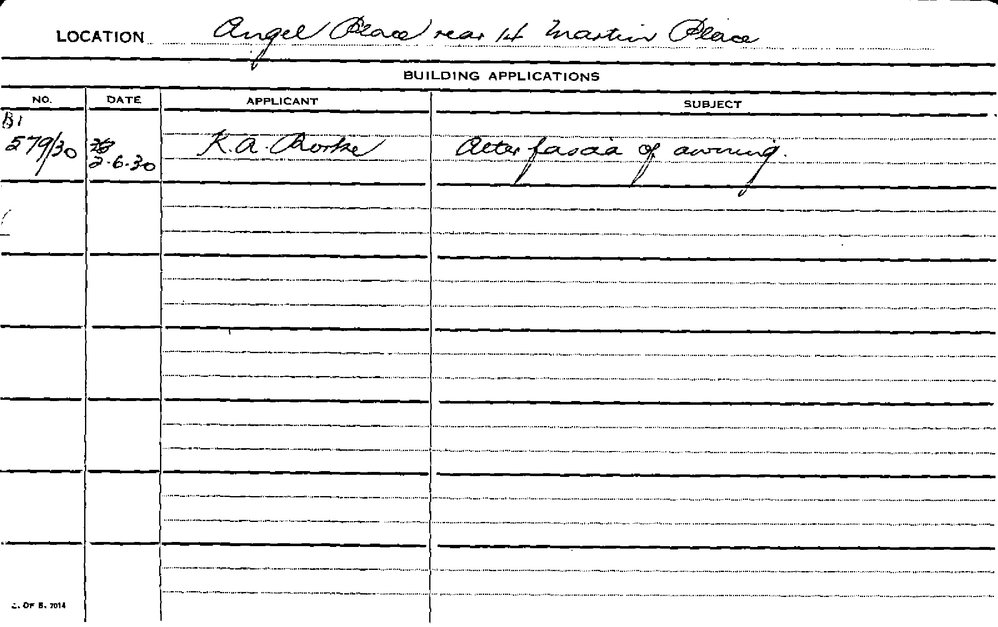 LOCATION Angel Place rear 14 Martin Place
BUILDING APPLICATIONS
NO. DATE APPLICANT SUBJECT
B1
579/30 2.6.30 K.A. Alter fascia of awning.
OF B. 2014